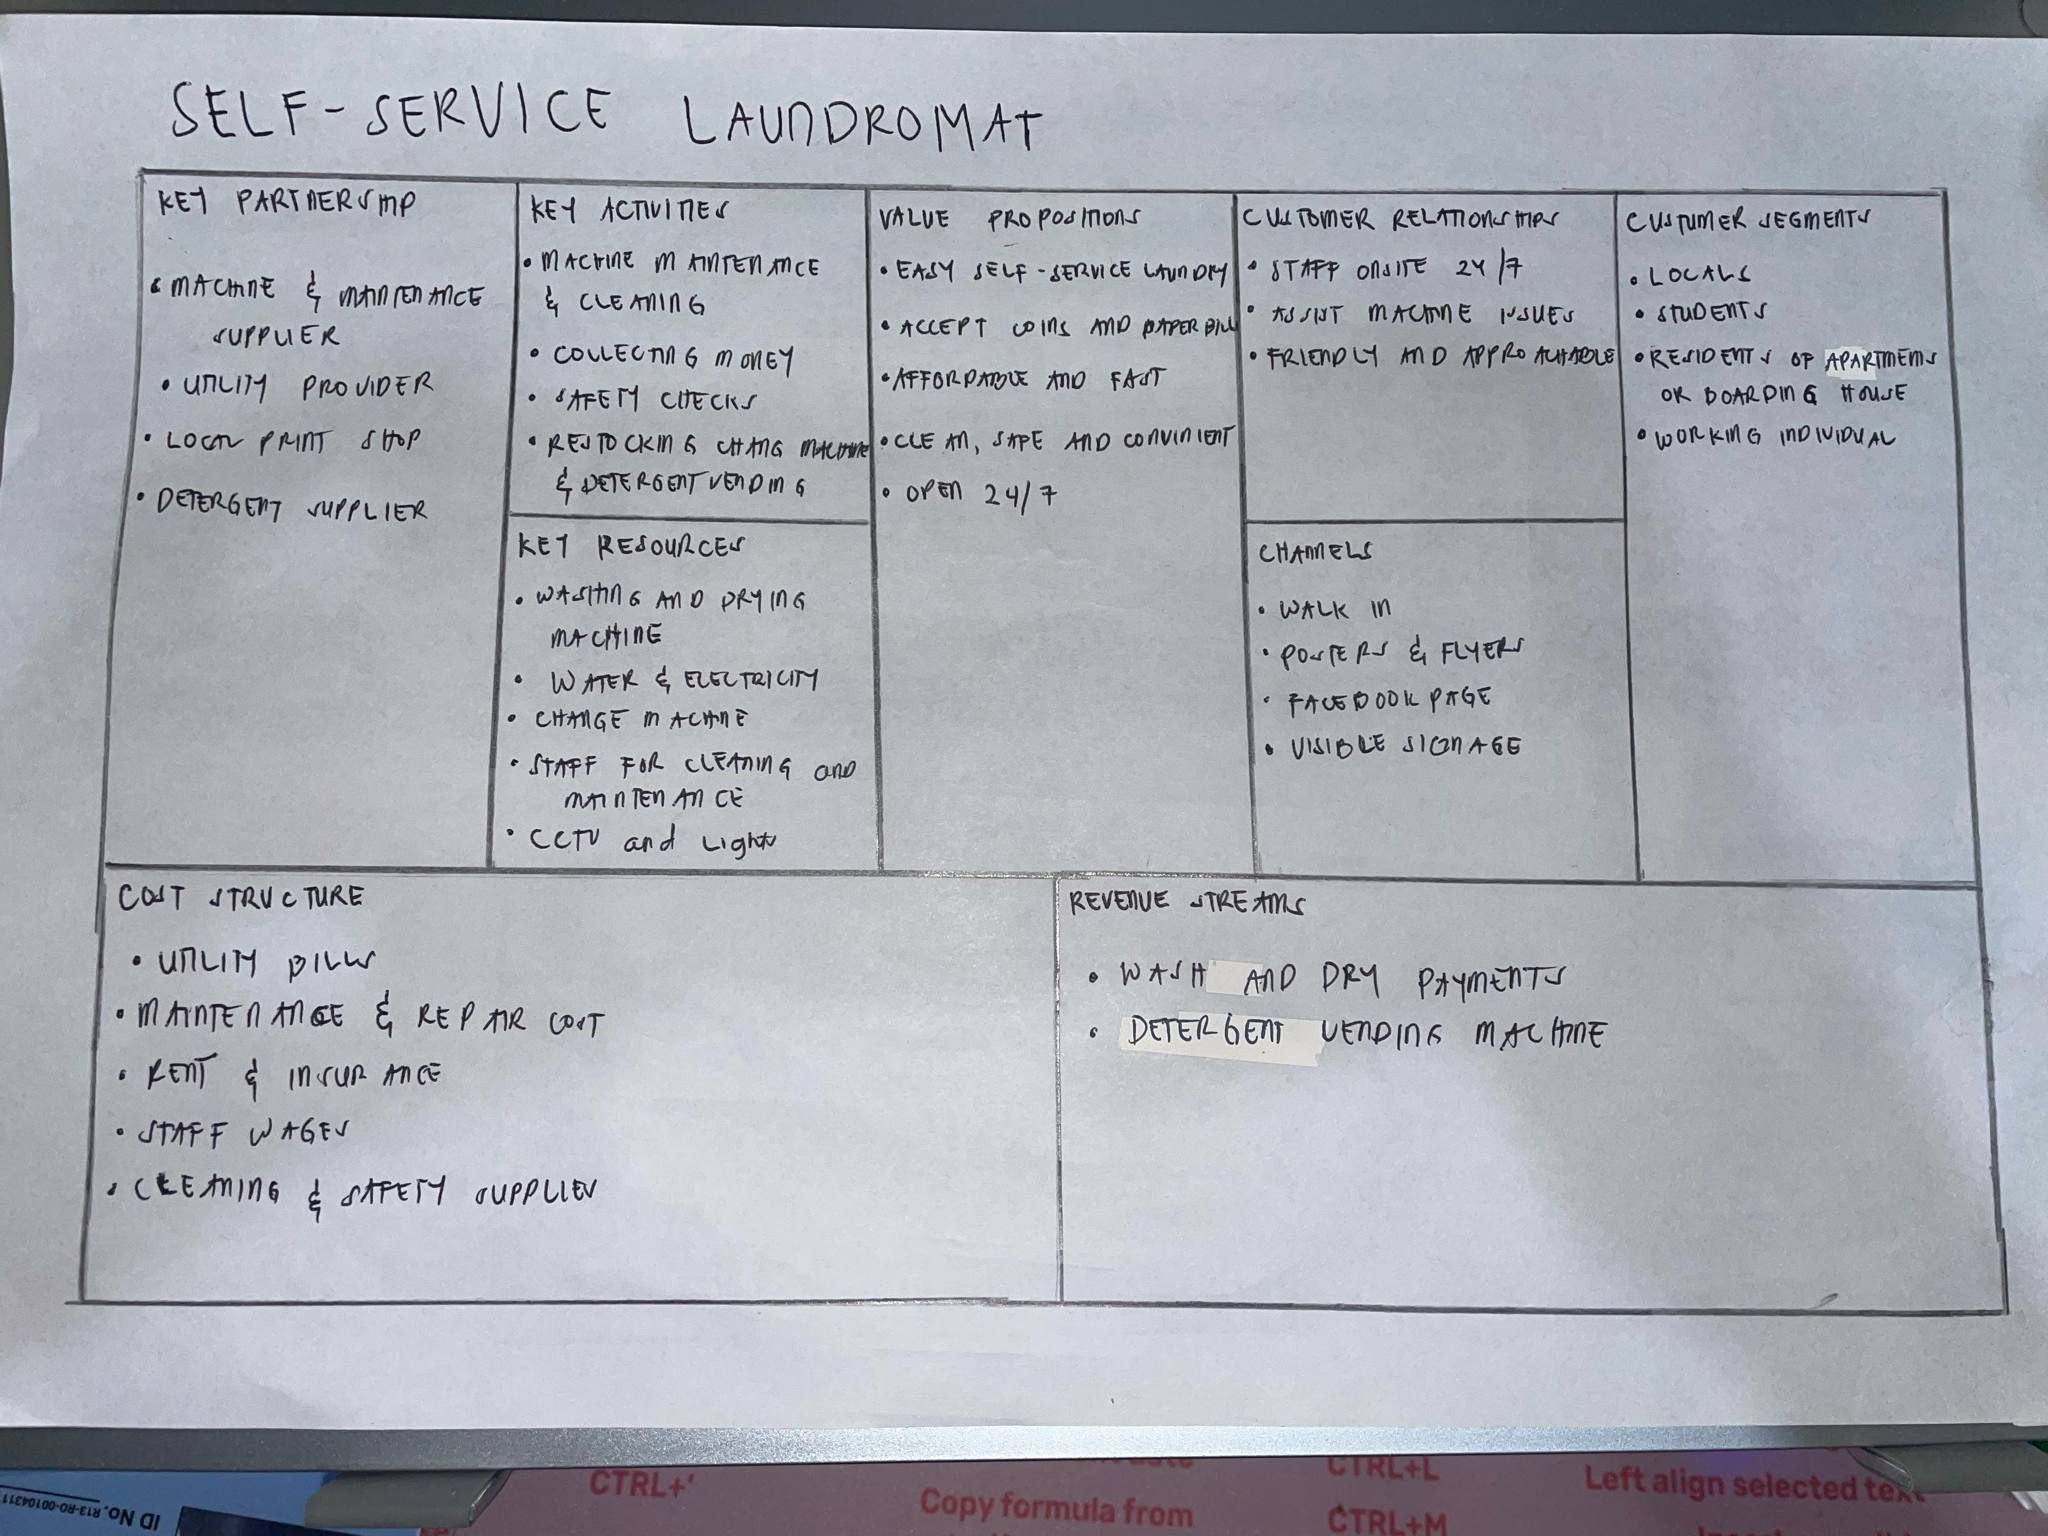 SELF-SERVICE LAUNDROMAT
KEY PARTNERSHIP
• MACHINE & MAINTENANCE
SUPPLIER
• UTILITY PROVIDER
• LOCAL PRINT SHOP
• DETERGENT SUPPLIER
KEY ACTIVITIES
• MACHINE MAINTENANCE
& CLEANING
• COLLECTING MONEY
• SAFETY CHECKS
• RESTOCKING CHANG MACHINE
& DETERGENT VENDING
KEY RESOURCES
• WASHING AND DRYING
MACHINE
• WATER & ELECTRICITY
• CHANGE MACHINE
• STAFF FOR CLEANING AND
MAINTENANCE
• CCTV and Lights
VALUE PROPOSITIONS
• EASY SELF-SERVICE LAUNDRY
• ACCEPT COINS AND PAPER BILL
• AFFORDABLE AND FAST
• CLEAN, SAFE AND CONVINIENT
• OPEN 24/7
CUSTOMER RELATIONSHIPS
• STAFF ONSITE 24/7
• ASSIST MACHINE ISSUES
• FRIENDLY AND APPROACHABLE
CHANNELS
• WALK IN
• POSTERS & FLYERS
• FACEBOOK PAGE
• VISIBLE SIGNAGE
CUSTUMER SEGMENTS
• LOCALS
• STUDENTS
• RESIDENTS OF APARTMENTS
OR BOARDING HOUSE
• WORKING INDIVIDUAL
COST STRUCTURE
• UTILITY BILLS
• MAINTENANCE & REPAIR COST
• RENT & INSURANCE
• STAFF WAGES
• CLEANING & SAFETY SUPPLIES
REVENUE STREAMS
• WASH AND DRY PAYMENTS
• DETERGENT VENDING MACHINE
CTRL+'
Copy formula from
CTRL+L
CTRL+M
Left align selected text
ID No. R13-RO-00104311